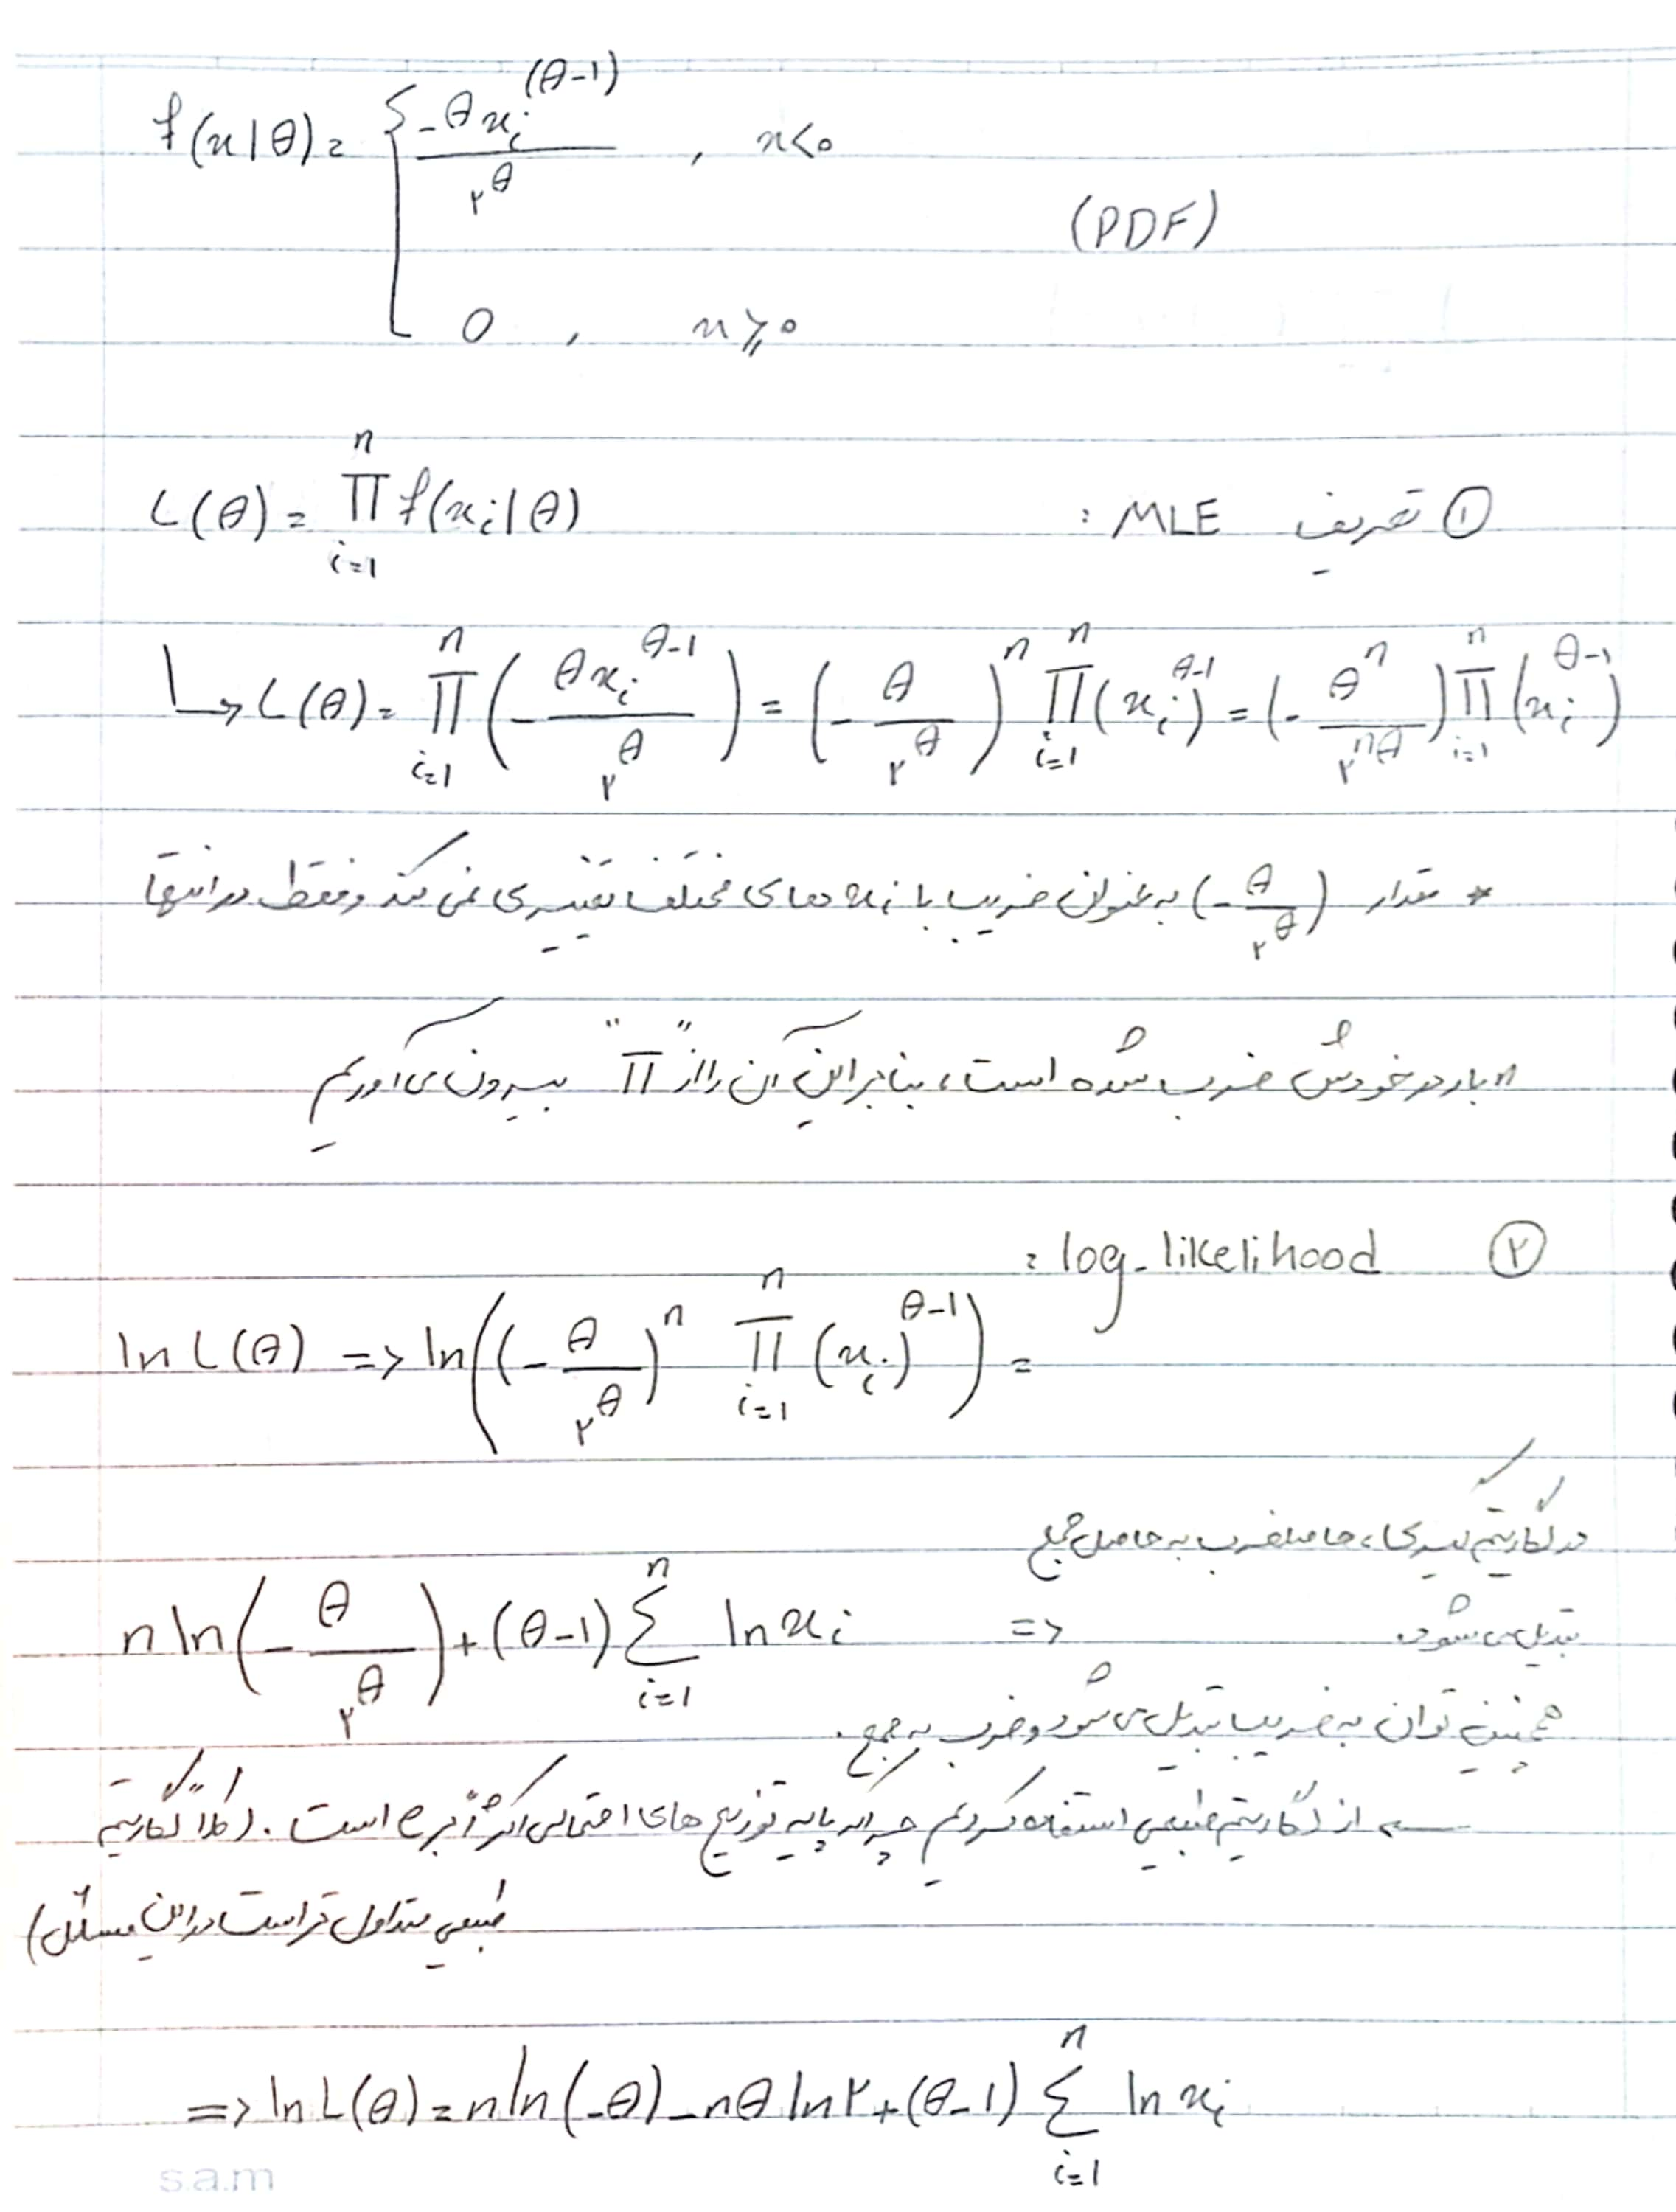 f(x|θ) = { -θx_i^(θ-1) / ۲^θ , x<0
(PDF)
0 , x⩾0
① تعریف MLE : L(θ) = ∏_{i=1}^{n} f(x_i|θ)
↳ L(θ) = ∏_{i=1}^{n} (- θx_i^{θ-1} / ۲^θ) = (- θ / ۲^θ)^n ∏_{i=1}^{n} (x_i)^{θ-1} = (- θ^n / ۲^{nθ}) ∏_{i=1}^{n} (x_i^{θ-1})
* مقدار (- θ / ۲^θ) به عنوان ضریب با x_i های مختلف تغییری نمی کند و فقط در انتها
n بار در خودش ضرب شده است، بنابراین آن را از "∏" بیرون می آوریم
② log-likelihood :
ln L(θ) => ln((- θ / ۲^θ)^n ∏_{i=1}^{n} (x_i)^{θ-1}) =
در لگاریتم گیری، حاصلضرب به حاصل جمع
تبدیل می شود. =>
n ln(- θ / ۲^θ) + (θ-1) ∑_{i=1}^{n} ln x_i
همچنین توان به ضریب تبدیل می شود و ضرب به جمع.
از لگاریتم طبیعی استفاده کردیم چرا که پایه توزیع های احتمالی اکثرا بر e است. (کلا لگاریتم
طبیعی متداول تر است در این مسائل)
=> ln L(θ) = n ln(-θ) - nθ ln۲ + (θ-1) ∑_{i=1}^{n} ln x_i
s.a.m